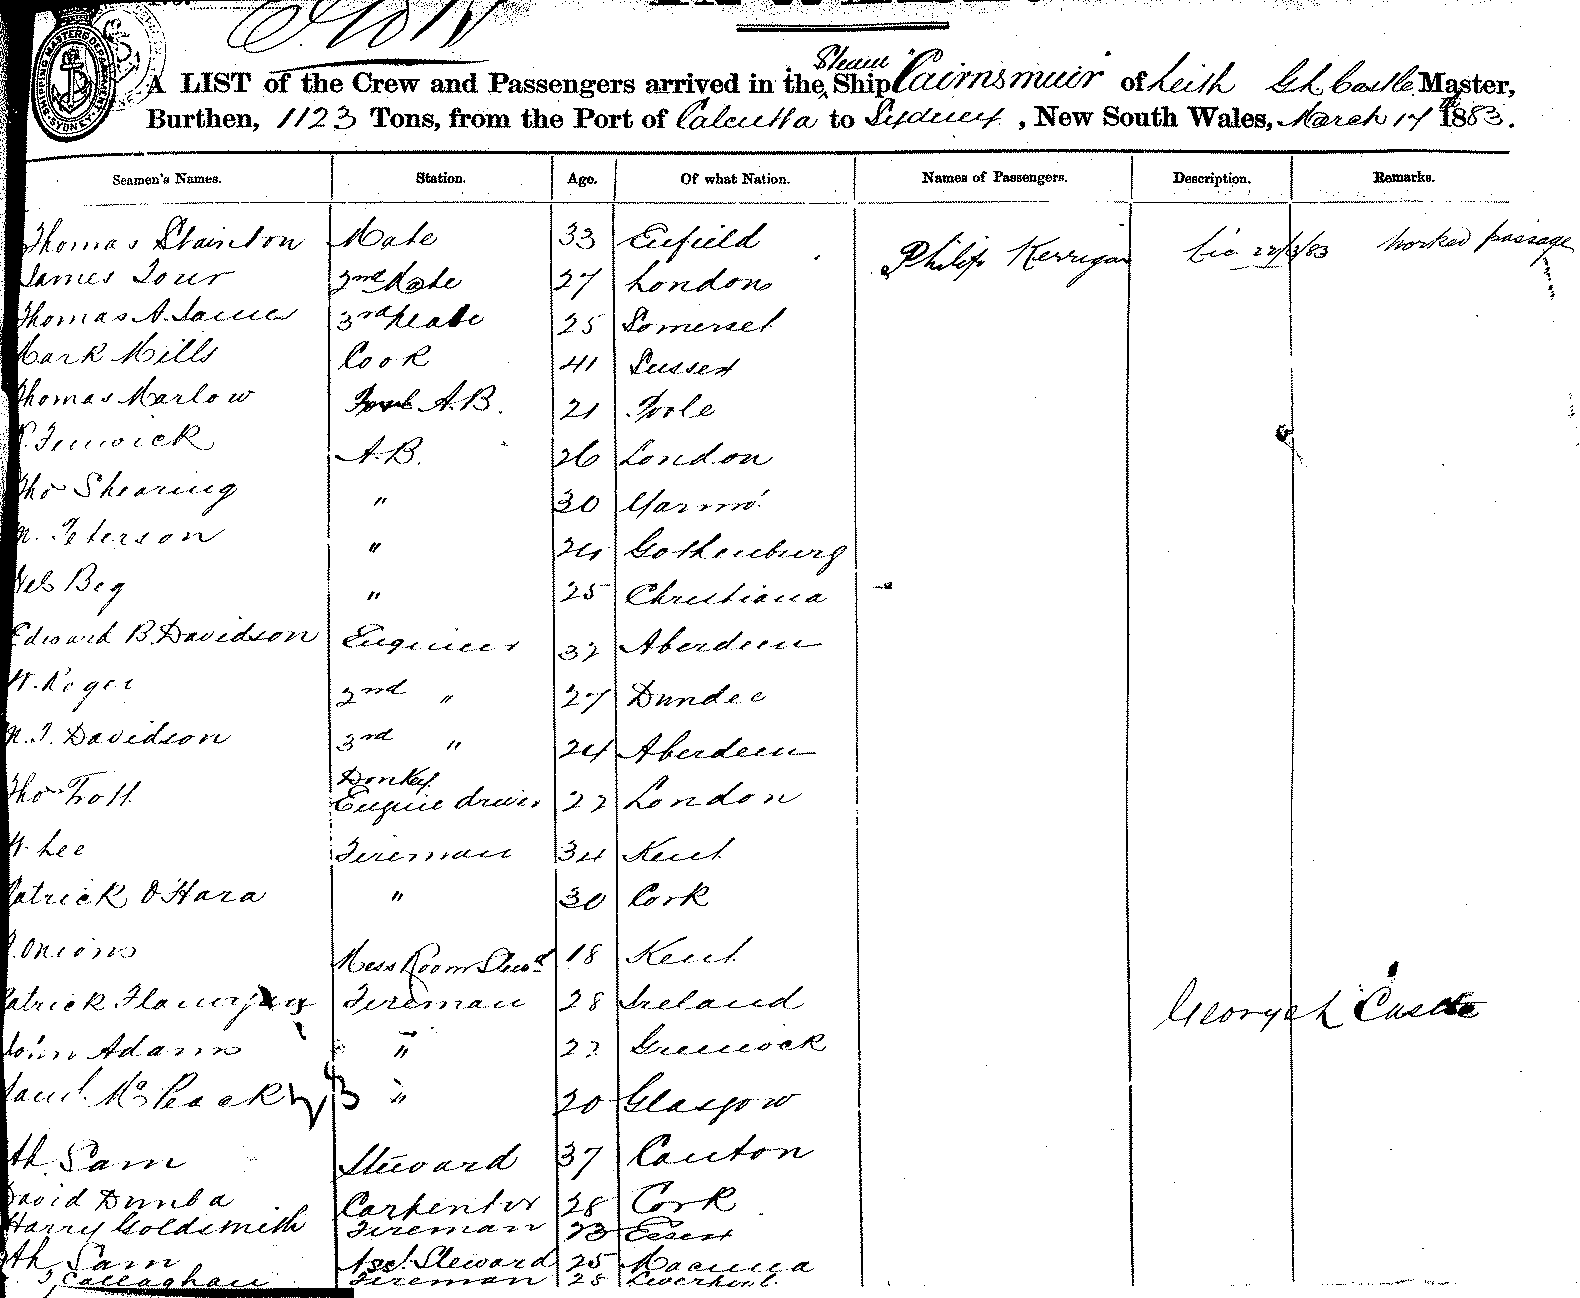 A LIST of the Crew and Passengers arrived in the Steam Ship Cairnsmuir of Leith G L Castle Master,
Burthen, 1123 Tons, from the Port of Calcutta to Sydney, New South Wales, March 17th 1883.
Seamen's Names. Station. Age. Of what Nation. Names of Passengers. Description. Remarks.
Thomas Stainton Mate 33 Enfield Philip Kerrigan worked passage
James 2nd Mate 27 London
Thomas A. 3rd Mate 25 Somerset
Mark Mills Cook 41 Sussex
Thomas Marlow A.B. 21 Poole
Fenwick A.B. 26 London
Thos Shearing " 30 Yarmo'
Peterson " 24 Gothenburg
Beg " 25 Christiana
Edward B. Davidson Engineer 32 Aberdeen
W. Roger 2nd " 27 Dundee
Davidson 3rd " 24 Aberdeen
Thos Trott Donkey Engine driver 22 London
W. Lee Fireman 34 Kent
Patrick O'Hara " 30 Cork
Onions Mess Room Stewd 18 Kent
Patrick Flanigan Fireman 28 Ireland
George L Castle
John Adams " 22 Greenock
" 20 Glasgow
Ah Sam Steward 37 Canton
David Dunba Carpenter 28 Cork
Harry Goldsmith Fireman 23 Essex
Ah Sam Asst. Steward 25 Macuua
Callaghan Fireman 25 Liverpool